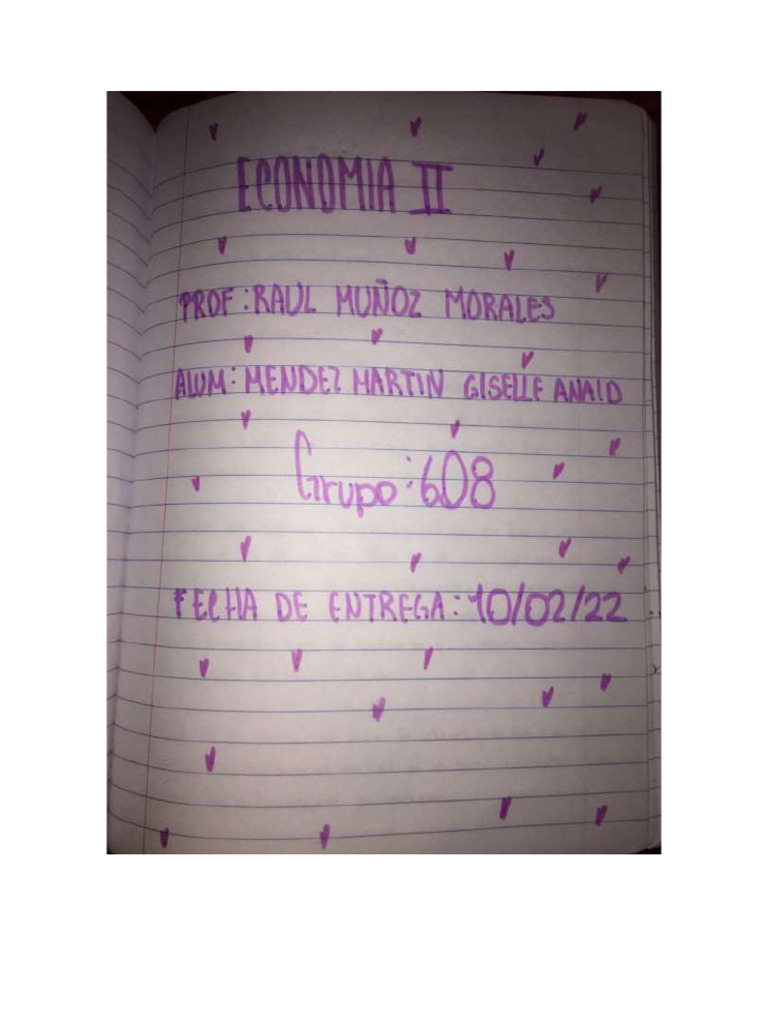 ECONOMIA II
PROF: RAUL MUÑOZ MORALES
ALUM: MENDEZ MARTIN GISELLE ANAID
Grupo: 608
FECHA DE ENTREGA: 10/02/22